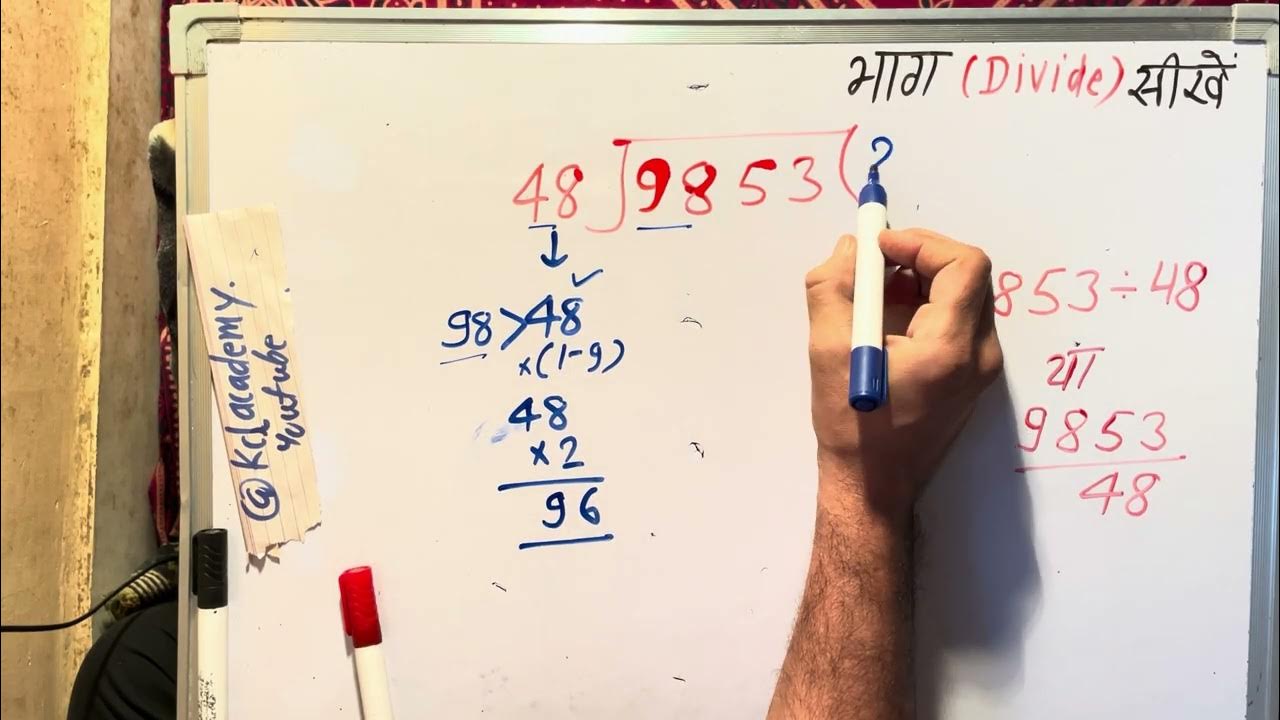 भाग (Divide) सीखें
48 9853 ( 2
98 > 48
× (1-9)
48
× 2
96
853 ÷ 48
या
9853
48
@kclacademy.
Youtube